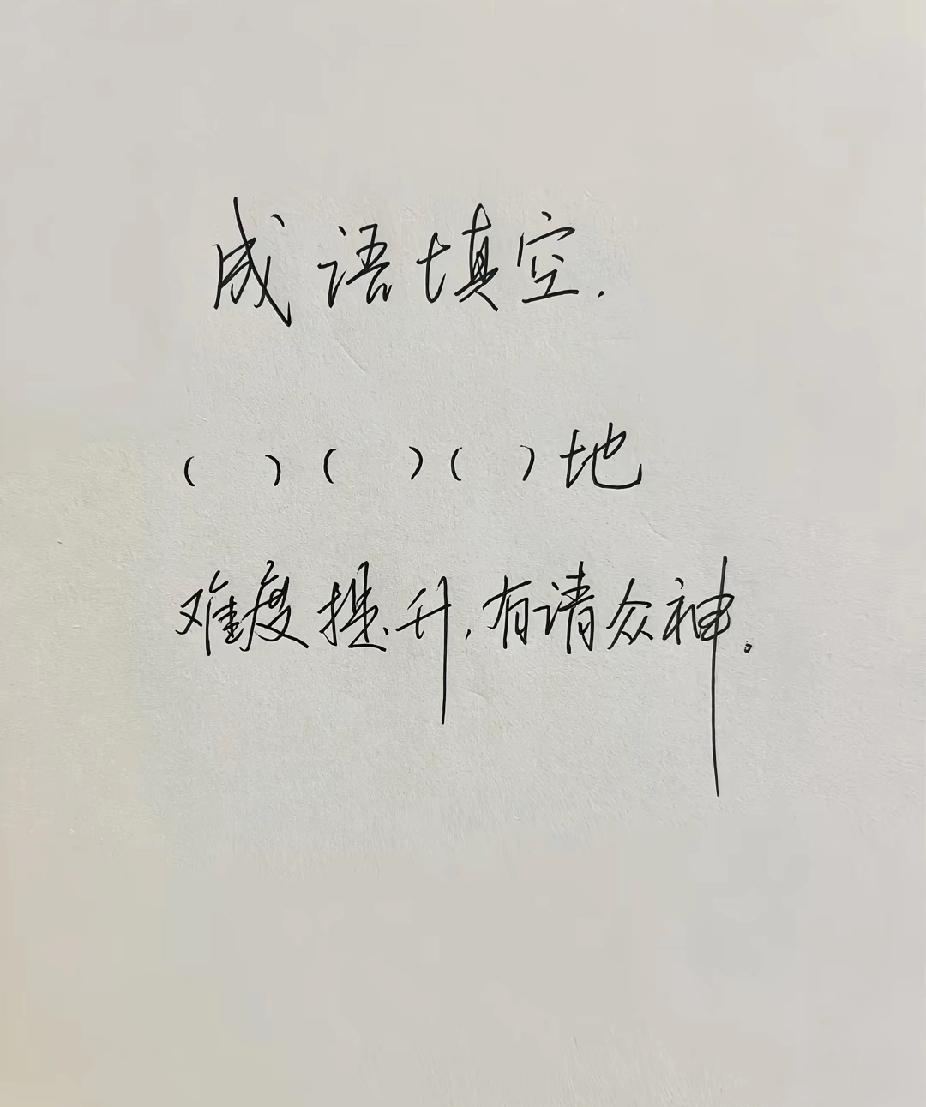 成语填空.
（ ）（ ）（ ）地
难度提升，有请众神。